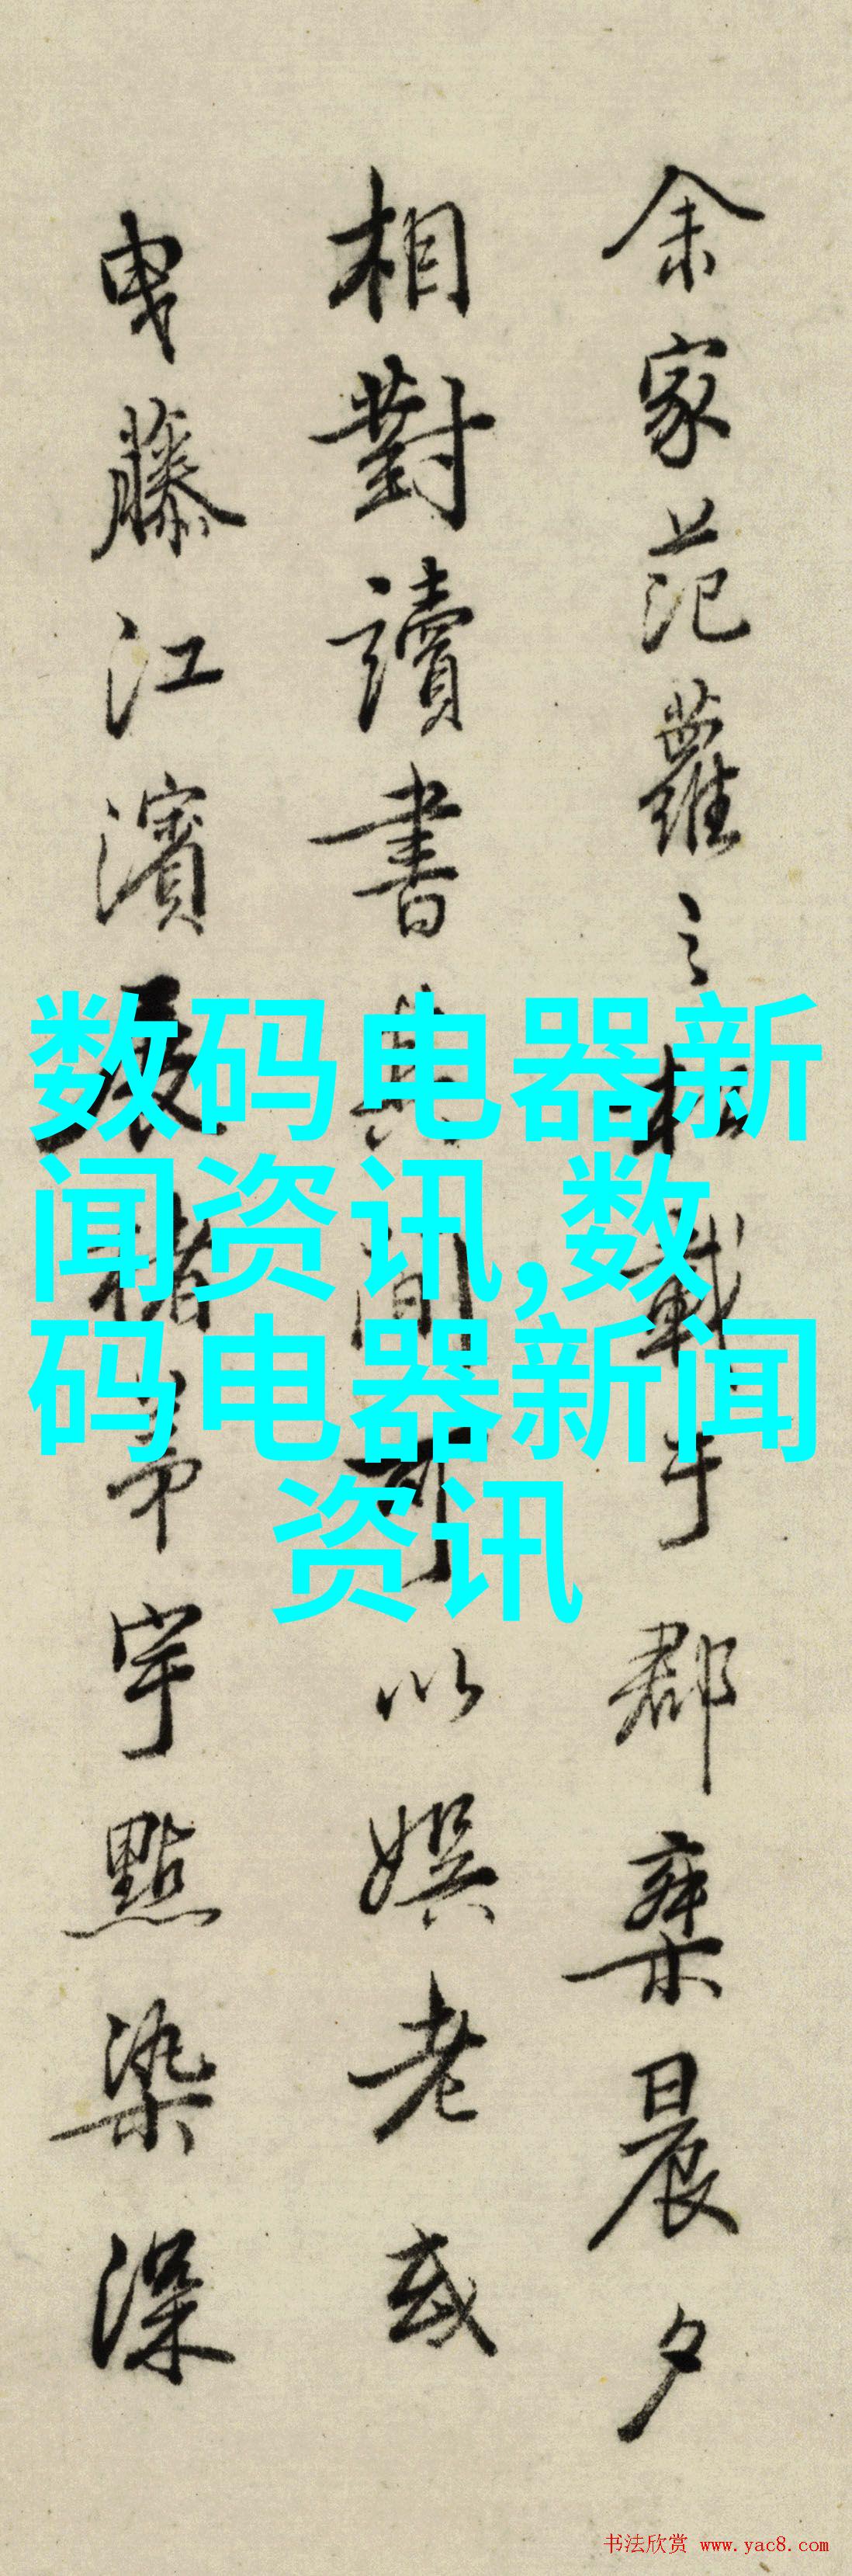 余家范蘿之載于郡乘晨夕
相對讀書其間可以娛老或
曳藤江濱展茅宇點染深
数码电器新
闻资讯,数
码电器新闻
资讯
书法欣赏 www.yac8.com